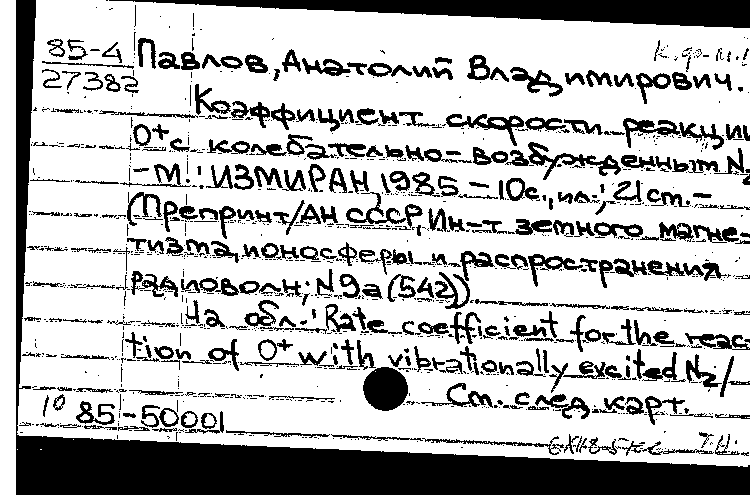 К.ф-м.
85-4 Павлов, Анатолий Владимирович.
27382
Коэффициент скорости реакции
O⁺ с колебательно-возбужденным N₂
-М.: ИЗМИРАН, 1985 - 10с., ил.; 21 см. -
(Препринт/АН СССР, Ин-т земного магне-
тизма, ионосферы и распространения
радиоволн; N 9а (542)).
На обл.: Rate coefficient for the reac-
tion of O⁺ with vibrationally excited N₂/
См. след. карт.
10 85-50001